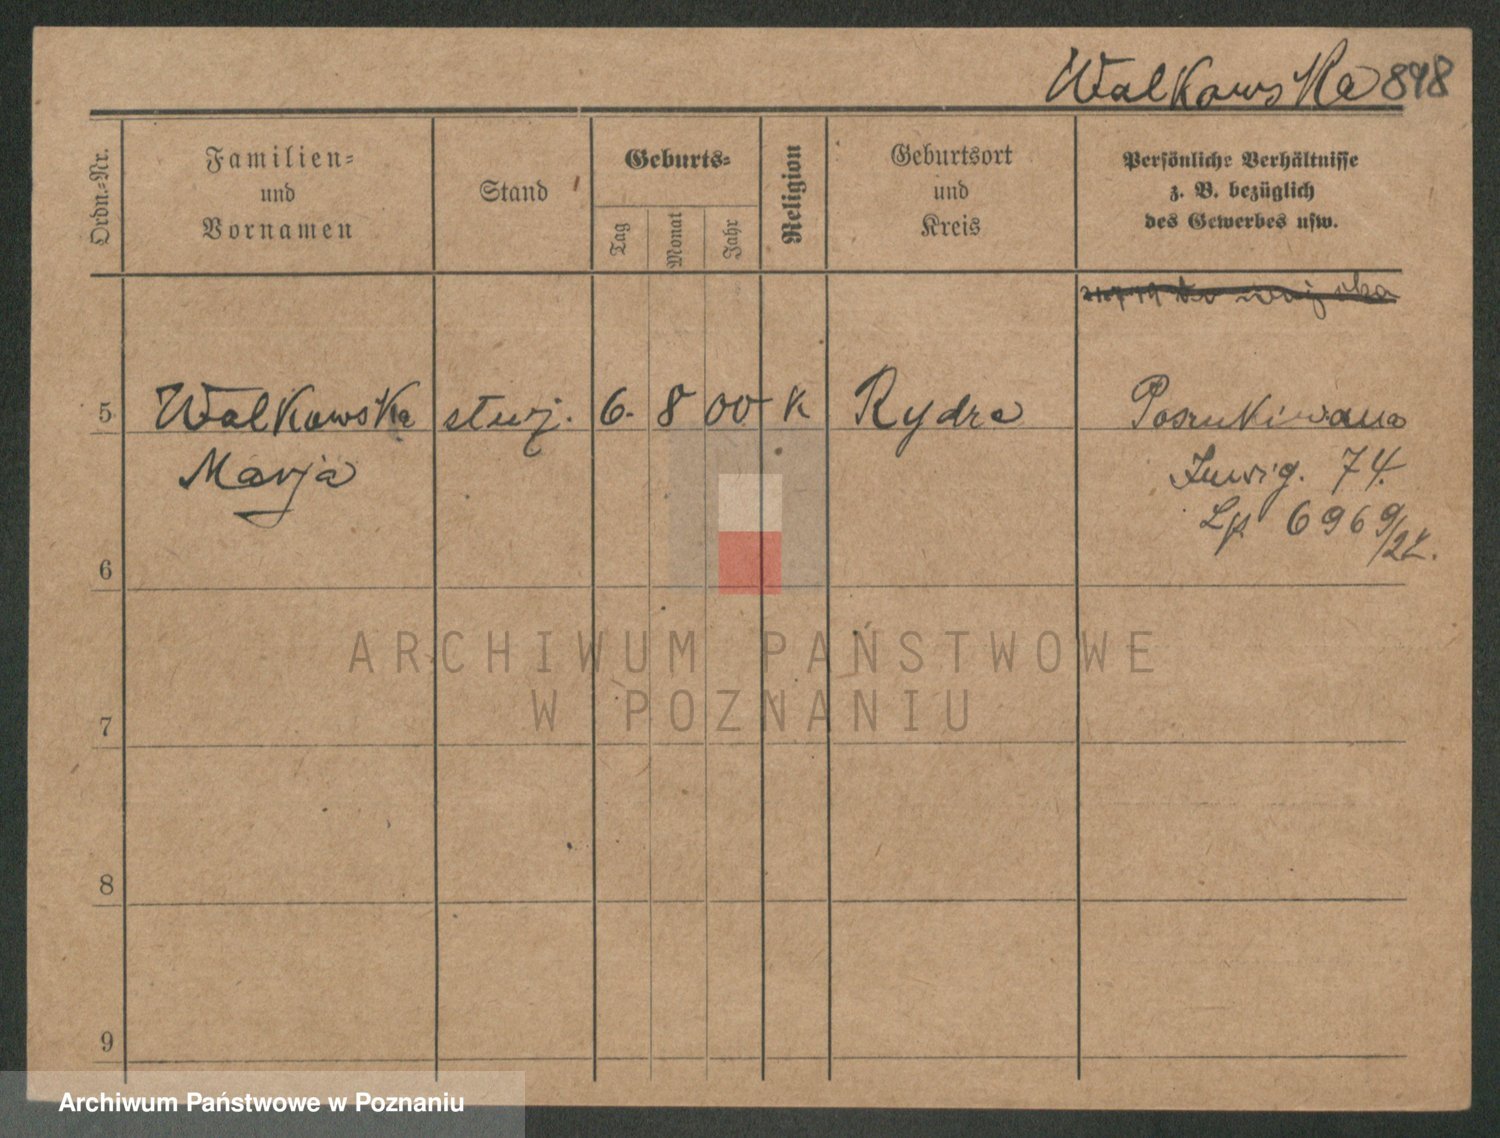 Walkowska 898
Ordn.-Nr.
Familien-
und
Vornamen
Stand
Geburts-
Tag
Monat
Jahr
Religion
Geburtsort
und
Kreis
Persönliche Verhältnisse
z. B. bezüglich
des Gewerbes usw.
5 Walkowska służ. 6. 8 00 K Rydze Poszukiwana
Marja
74.
Lp 6969/22.
6
7
8
9
ARCHIWUM PAŃSTWOWE
W POZNANIU
Archiwum Państwowe w Poznaniu